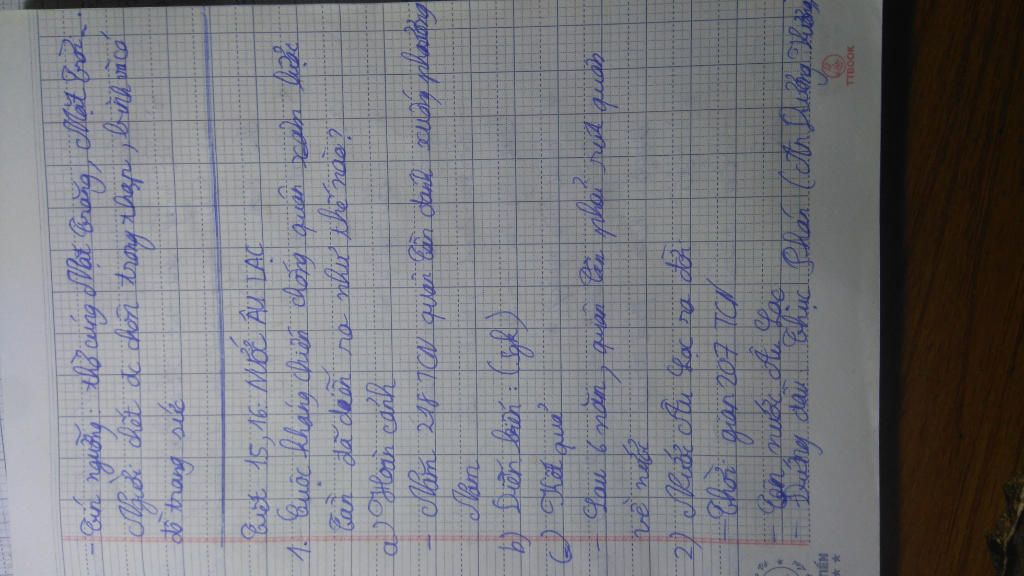 - Tín ngưỡng: thờ cúng Mặt Trăng, Mặt Trời -
Người chết đc chôn trong thạp, bình và có
đồ trang sức
Tiết 15, 16: NƯỚC ÂU LẠC
1. Cuộc kháng chiến chống quân xâm lược
Tần đã diễn ra như thế nào?
a) Hoàn cảnh
- Năm 218 TCN quân Tần đánh xuống phương
Nam
b) Diễn biến: (sgk)
c) Kết quả
- Sau 6 năm, quân Tần phải rút quân
về nước
2) Nước Âu Lạc ra đời
- Thời gian 207 TCN
- Tên nước Âu Lạc
- Đứng đầu Thục Phán (An Dương Vương
TTBOOK
TIẾN